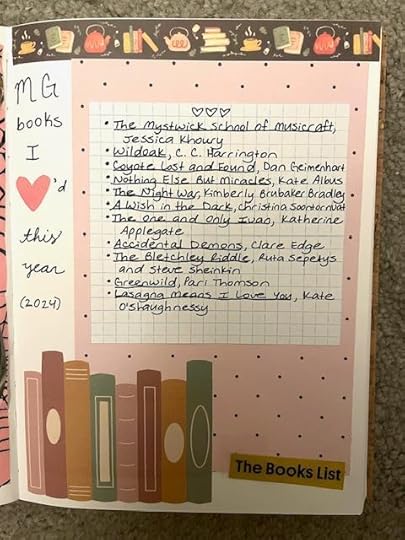 MG
books
I
♥'d
this
year
(2024)
♡♡♡
• The Mystwick School of Musicraft,
Jessica Khoury
• Wildoak, C. C. Harrington
• Coyote Lost and Found, Dan Geimenhart
• Nothing Else But Miracles, Kate Albus
• The Night War, Kimberly Brubaker Bradley
• A Wish in the Dark, Christina Soontornvat
• The One and Only Ivan, Katherine
Applegate
• Accidental Demons, Clare Edge
• The Bletchley Riddle, Ruta Sepetys
and Steve Sheinkin
• Greenwild, Pari Thomson
• Lasagna Means I Love You, Kate
O'Shaughnessy
The Books List